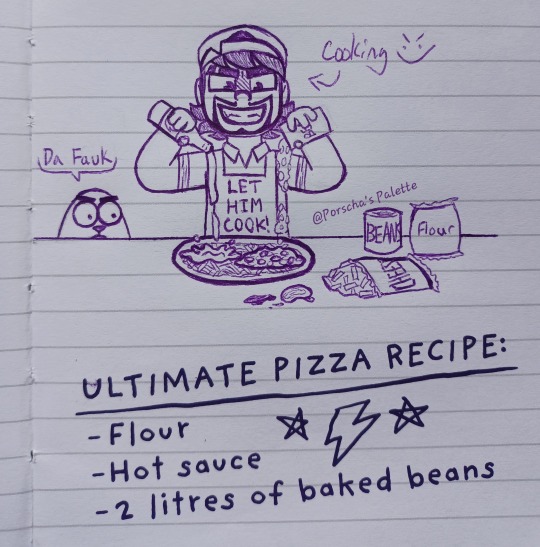 Cooking
Da Fauk
LET
HIM
COOK!
@Porscha's Palette
BEANS
Flour
CHEESE
ULTIMATE PIZZA RECIPE:
- Flour
- Hot sauce
- 2 litres of baked beans